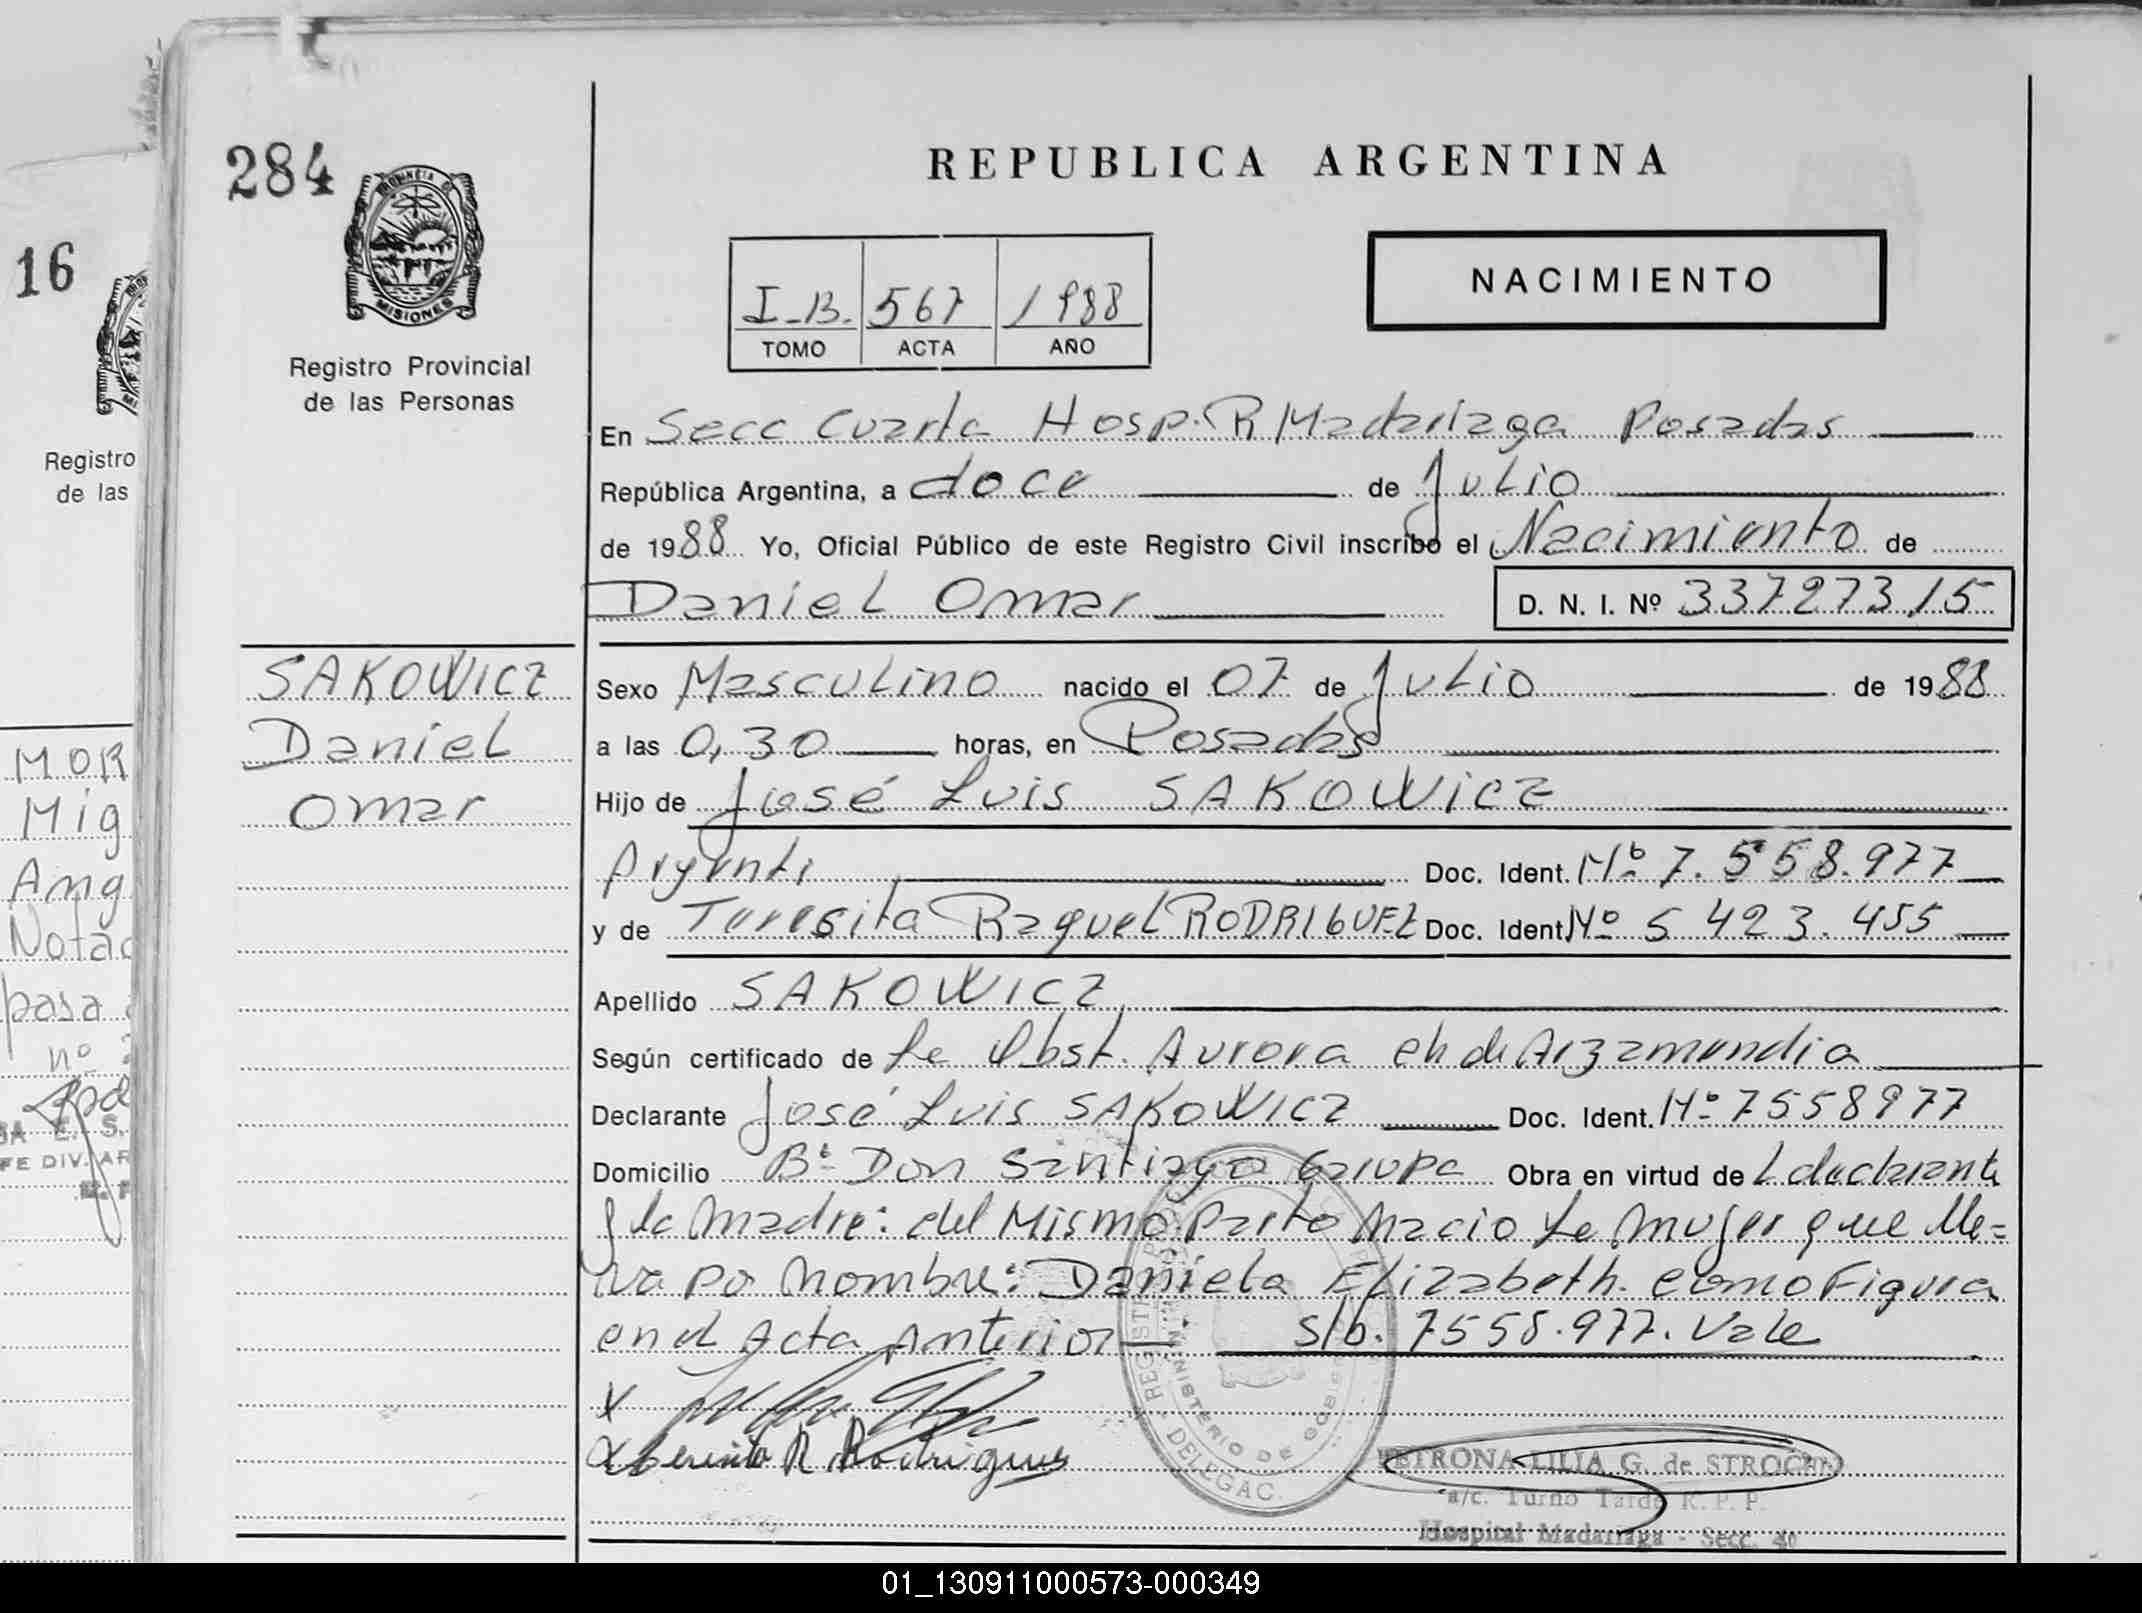 284
PROVINCIA D
MISIONES
Registro Provincial
de las Personas
REPUBLICA ARGENTINA
I-B. 567 1988
TOMO ACTA AÑO
NACIMIENTO
En Secc Cuarta Hosp. R Madariaga Posadas
República Argentina, a doce de Julio
de 1988 Yo, Oficial Público de este Registro Civil inscribo el Nacimiento de
Daniel Omar
D. N. I. Nº 33727315
SAKOWICZ
Daniel
Omar
Sexo Masculino nacido el 07 de Julio de 1988
a las 0,30 horas, en Posadas
Hijo de José Luis SAKOWICZ
Argenti Doc. Ident. Nº 7.558.977
y de Teresita Raquel RODRIGUEZ Doc. Ident Nº 5 423.455
Apellido SAKOWICZ
Según certificado de La Obst. Aurora ch de Arzamendia
Declarante José Luis SAKOWICZ Doc. Ident. Nº 7558977
Domicilio Bº Don Santiago Garupa Obra en virtud de L declarante
y la Madre: del Mismo Parto Nacio La Mujer que lle=
va po Nombre: Daniela Elizabeth. como Figura
en el Acta Anterior s/b. 7558.977. Vale
X
Teresita R Rodrigues
REGISTR
MINISTERIO DE GOBI
DELEGAC.
PETRONA LILIA G. de STROCHI
a/c. Turno Tarde R. P. P.
Hospital Madariaga - Secc. 4º
16
Registro
de las
MOR
Mig
Ang
Notac
pasa
nº
E. S.
FE DIV. AR
01_130911000573-000349